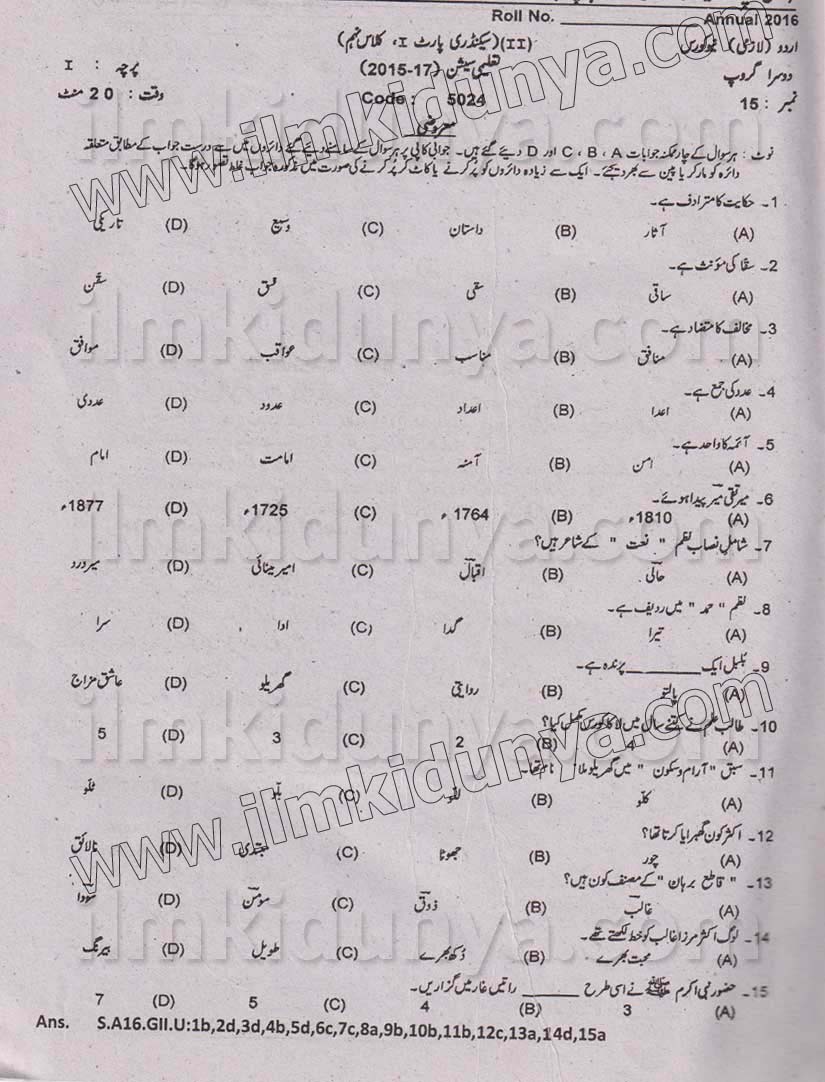 Roll No. ____________ Annual 2016
اردو (لازمی) نیو کورس (II) (سیکنڈری پارٹ I، کلاس نہم)
دوسرا گروپ تعلیمی سیشن (2015-17) پرچہ : I
نمبر : 15 Code : 5024 وقت : 20 منٹ
معروضی
نوٹ : ہر سوال کے چار ممکنہ جوابات A ، B ، C اور D دیئے گئے ہیں۔ جوابی کاپی پر ہر سوال کے سامنے دیئے گئے دائروں میں سے درست جواب کے مطابق متعلقہ
دائرہ کو مارکر یا پین سے بھر دیجئے۔ ایک سے زیادہ دائروں کو پُر کرنے یا کاٹ کر پُر کرنے کی صورت میں مذکورہ جواب غلط تصور ہوگا۔
1۔ حکایت کا مترادف ہے۔
(A) آثار (B) داستان (C) وسیع (D) تاریکی
2۔ سقّا کی مؤنث ہے۔
(A) ساقی (B) سقی (C) فسق (D) سقّن
3۔ مخالف کا متضاد ہے۔
(A) منافق (B) مناسب (C) عواقب (D) موافق
4۔ عدد کی جمع ہے۔
(A) اعدا (B) اعداد (C) عدود (D) عددی
5۔ آئمہ کا واحد ہے۔
(A) امن (B) آمنہ (C) امامت (D) امام
6۔ میر تقی میر پیدا ہوئے۔
(A) 1810ء (B) 1764 ء (C) 1725ء (D) 1877ء
7۔ شاملِ نصاب نظم " نعت " کے شاعر ہیں؟
(A) حالی (B) اقبال (C) امیر مینائی (D) میر درد
8۔ نظم " حمد " میں ردیف ہے۔
(A) تیرا (B) گدا (C) ادا (D) سرا
9۔ بُلبل ایک ________ پرندہ ہے۔
(A) پالتو (B) روایتی (C) گھریلو (D) عاشق مزاج
10۔ طالب علم نے کتنے سال میں لا کا کورس مکمل کیا؟
(A) 4 (B) 2 (C) 3 (D) 5
11۔ سبق " آرام و سکون " میں گھریلو ملا نام تھا۔
(A) کلّو (B) للّو (C) بلّو (D) ٹلّو
12۔ اکثر کون گھبرایا کرتا تھا؟
(A) چور (B) جھوٹا (C) مبتدی (D) نالائق
13۔ " قاطع برہان " کے مصنف کون ہیں؟
(A) غالب (B) ذوق (C) مومن (D) سودا
14۔ لوگ اکثر مرزا غالب کو خط لکھتے تھے۔
(A) محبت بھرے (B) دُکھ بھرے (C) طویل (D) بیرنگ
15۔ حضور نبی اکرم ﷺ نے اسی طرح ______ راتیں غار میں گزاریں۔
(A) 3 (B) 4 (C) 5 (D) 7
Ans. S.A16.GII.U:1b,2d,3d,4b,5d,6c,7c,8a,9b,10b,11b,12c,13a,14d,15a
www.ilmkidunya.com
ilmkidunya.com
ilmkidunya.com
ilmkidunya.com
www.ilmkidunya.com
ilmkidunya.com